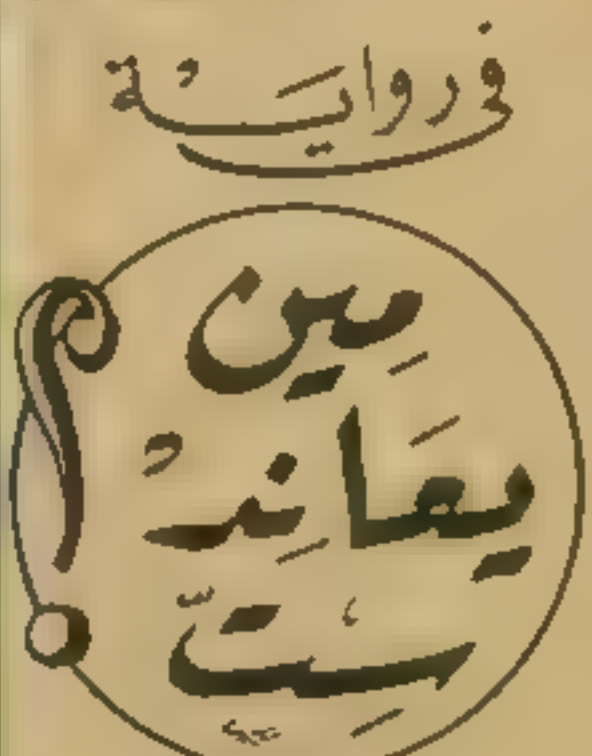 في روايَةْ
مِين
يعَانِدْ
سِتّ
؟